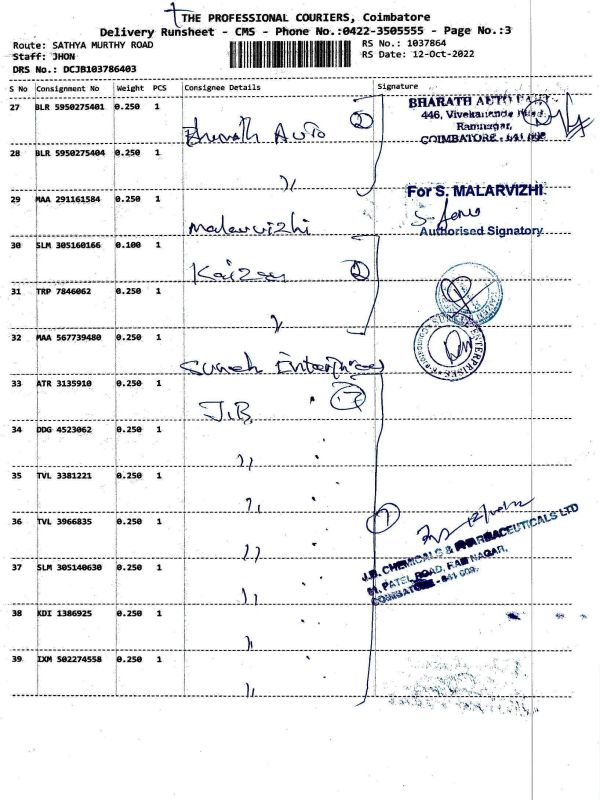 THE PROFESSIONAL COURIERS, Coimbatore
Delivery Runsheet - CMS - Phone No.:0422-3505555 - Page No.:3
Route: SATHYA MURTHY ROAD
Staff: JHON
DRS No.: DCJB103786403
RS No.: 1037864
RS Date: 12-Oct-2022
S No Consignment No Weight PCS Consignee Details Signature
27 BLR 5950275401 0.250 1 Bharath Auto 2
BHARATH AUTO
446, Vivekananda Road,
Ramnagar,
COIMBATORE - 641 009
28 BLR 5950275404 0.250 1 ,,
29 MAA 291161584 0.250 1 Malarvizhi
For S. MALARVIZHI
Authorised Signatory
30 SLM 305160166 0.100 1 Kaizen 2
31 TRP 7846062 0.250 1 ,,
32 MAA 567739480 0.250 1 Suresh Enterprises
33 ATR 3135910 0.250 1 J.B. 7
34 DDG 4523062 0.250 1 ,,
35 TVL 3381221 0.250 1 ,,
36 TVL 3966835 0.250 1 ,, 7
J.B. CHEMICALS & PHARMACEUTICALS LTD
61, PATEL ROAD, RAM NAGAR,
COIMBATORE - 641 009.
37 SLM 305140630 0.250 1 ,,
38 KDI 1386925 0.250 1 ,,
39 IXM 502274558 0.250 1 ,,